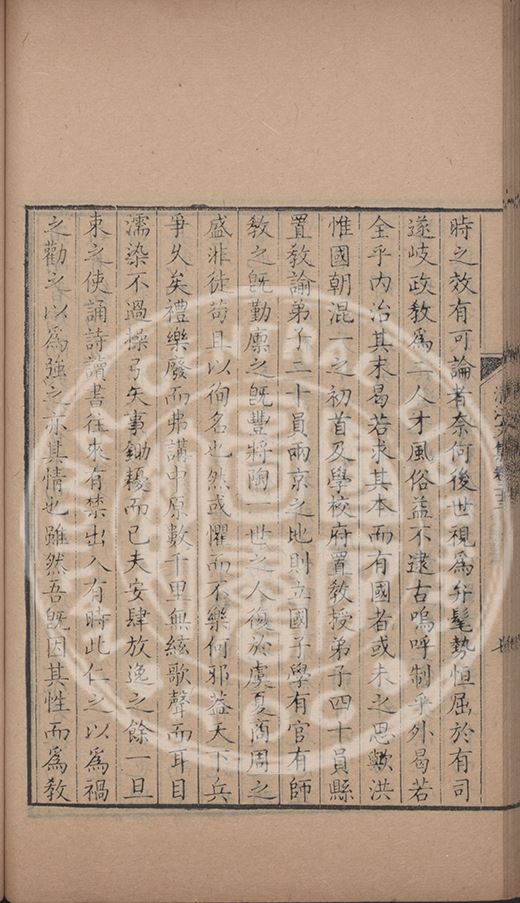 時之效有可論者奈何後世視爲弁髦勢恒屈於有司
遂岐政教爲二人才風俗益不逮古嗚呼制乎外曷若
全乎内治其末曷若求其本而有國者或未之思歟洪
惟國朝混一之初首及學校府置教授弟子四十員縣
置教諭弟子二十員兩京之地則立國子學有官有師
教之既勤廩之既豐將陶一世之人復於虞夏商周之
盛非徒苟且以徇名也然或懼而不樂何邪蓋天下兵
爭久矣禮樂廢而弗講中原數千里無絃歌聲而耳目
濡染不過操弓矢事鋤耰而已夫安肆放逸之餘一旦
束之使誦詩讀書往來有禁出入有時此仁之以爲禍
之勸之以爲強之亦其情也雖然吾既因其性而爲教